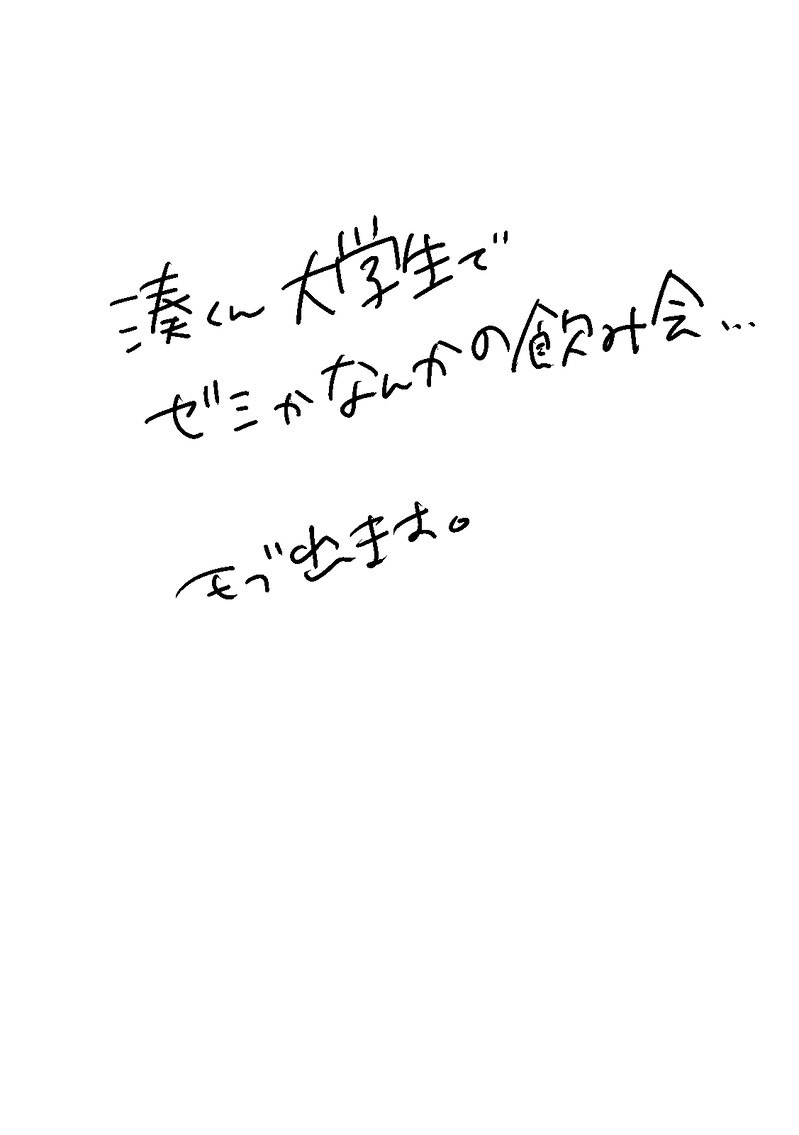 湊くん大学生で
ゼミかなんかの飲み会…
モブ出ます。